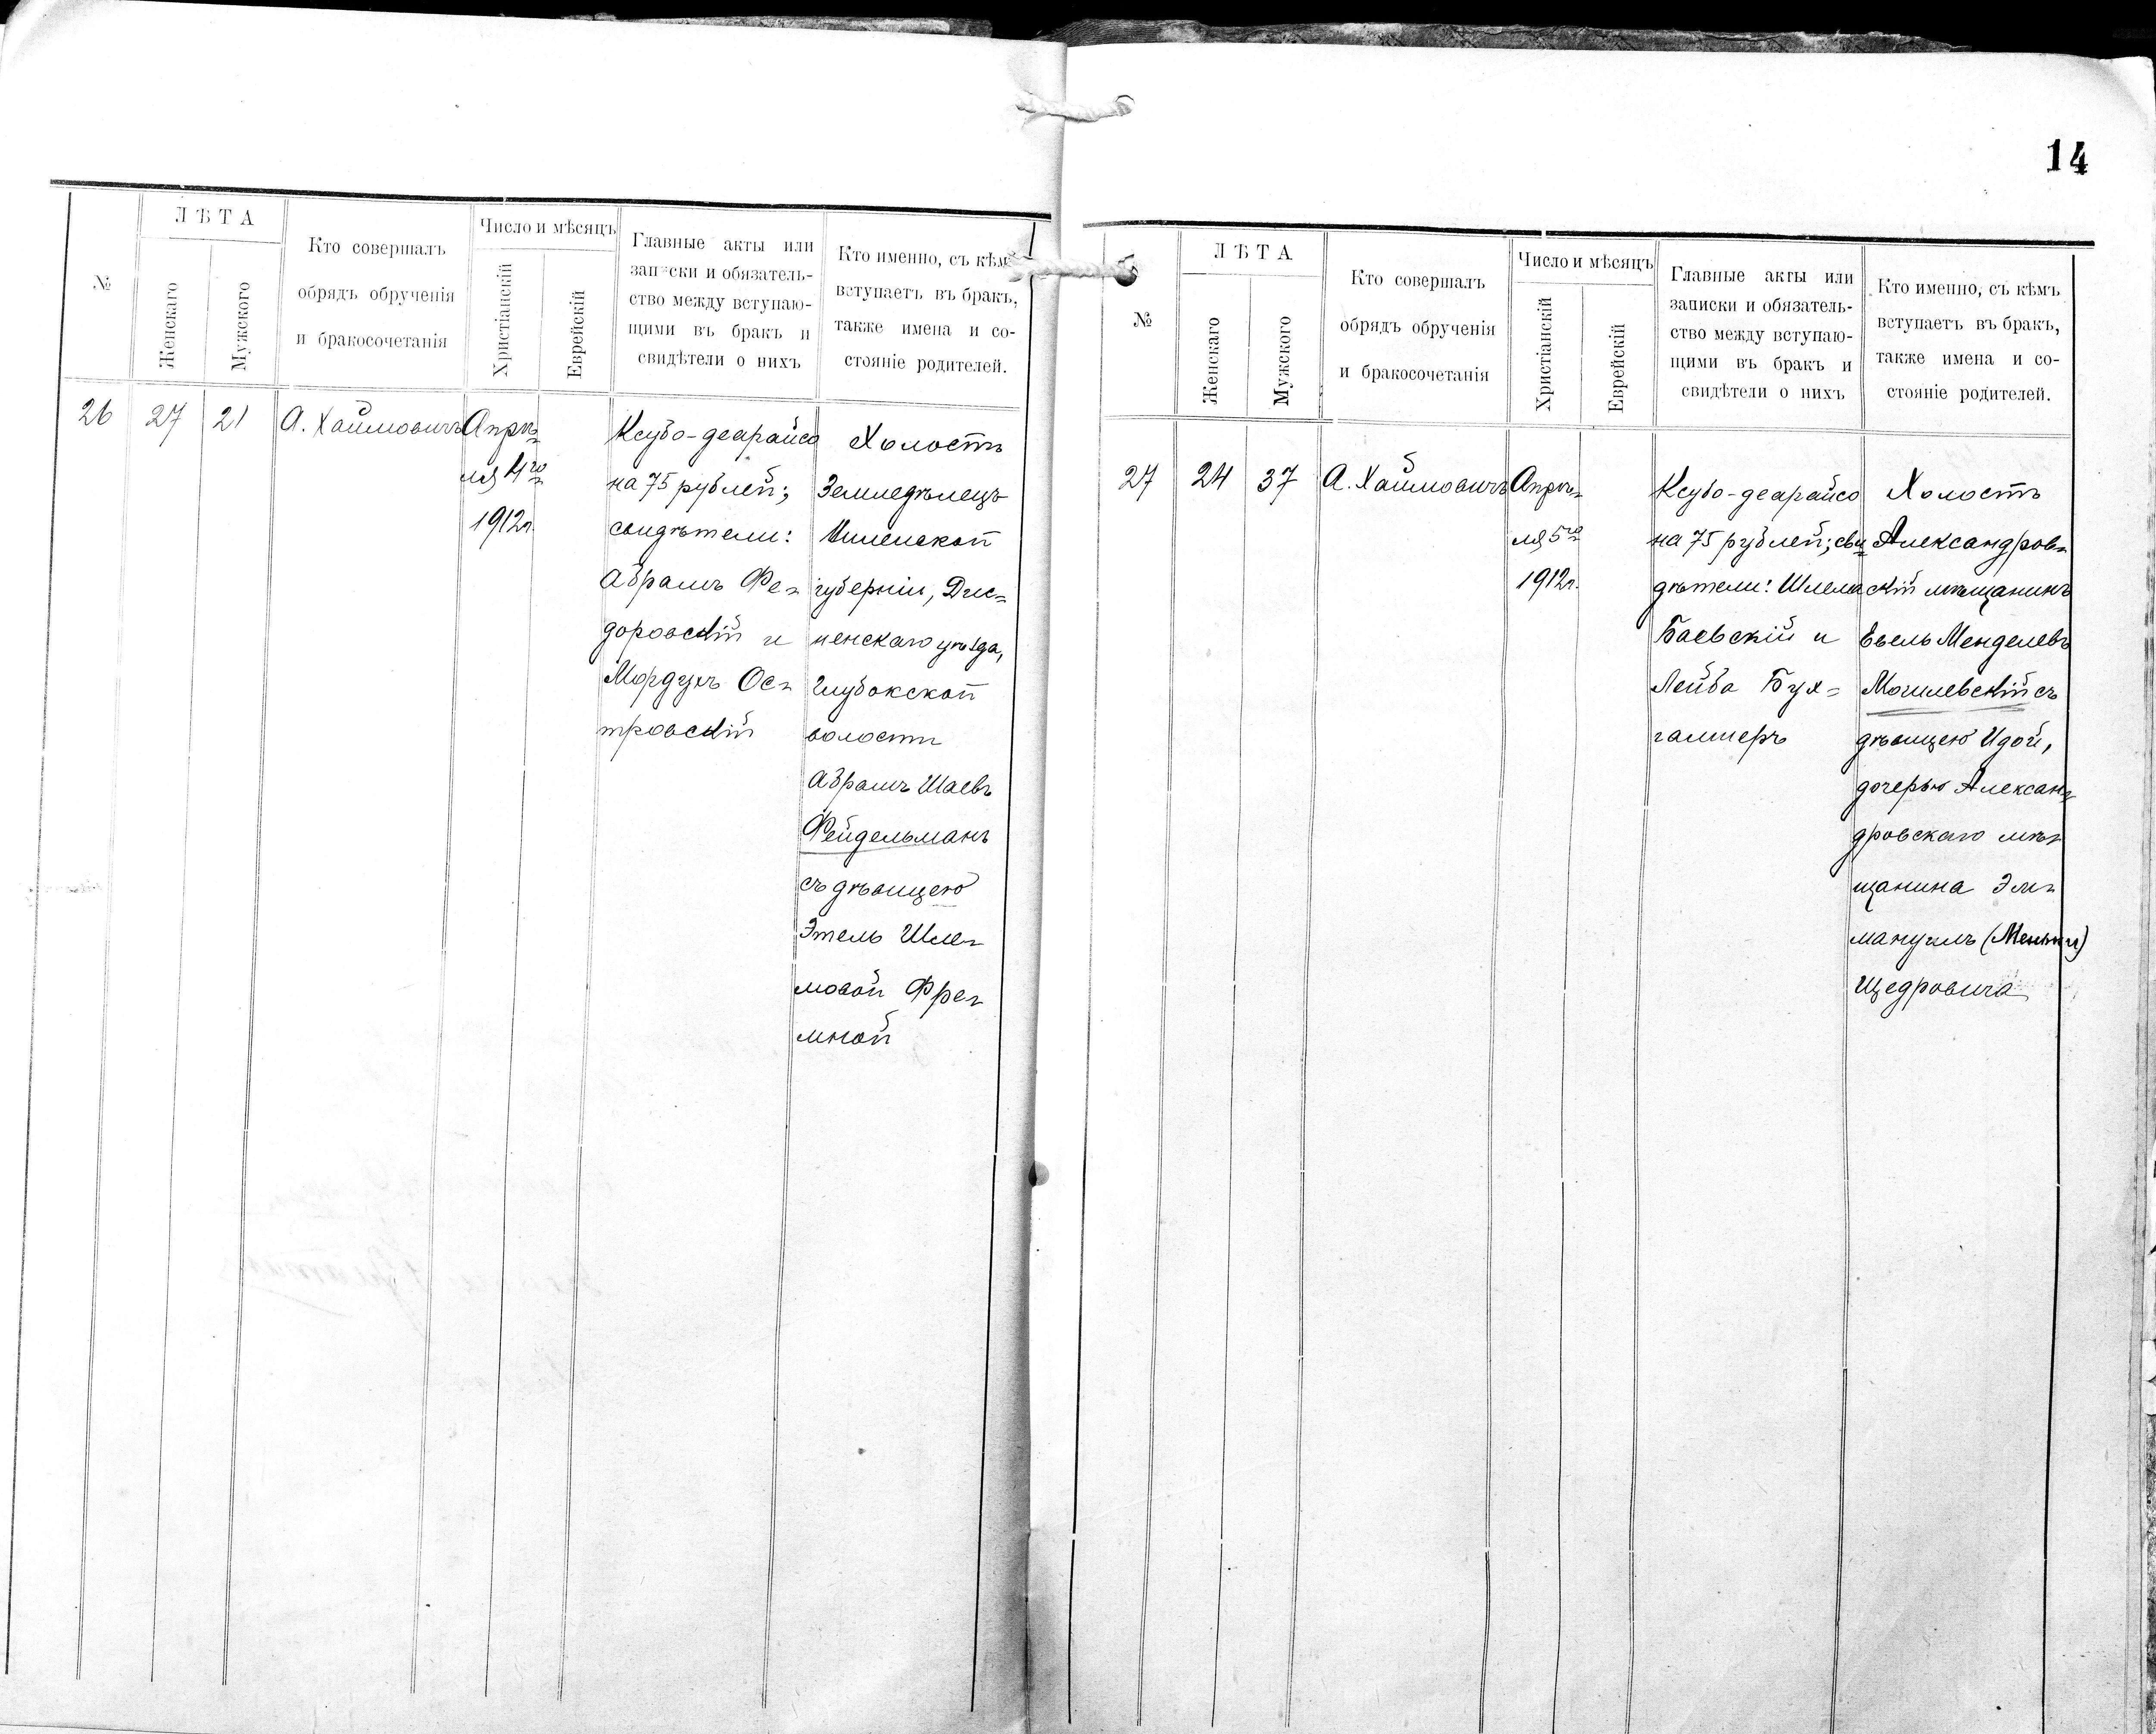 14
№
ЛѢТА
Женскаго
Мужского
Кто совершалъ
обрядъ обрученія
и бракосочетанія
Число и мѣсяцъ
Христіанскій
Еврейскій
Главные акты или
записки и обязатель-
ство между вступаю-
щими въ бракъ и
свидѣтели о нихъ
Кто именно, съ кѣмъ
вступаетъ въ бракъ,
также имена и со-
стояніе родителей.
26
27
21
А. Хаймовичъ
Апрѣ-
ля 4го
1912г.
Ксубо-деарайсо
на 75 рублей;
свидѣтели:
Абрамъ Фе-
доровскій и
Мордухъ Ос-
тровскій
Холостъ
Земледѣлецъ
Виленской
губерніи, Дис-
ненскаго уѣзда,
Глубокской
волости
Абрамъ Шаевъ
Фейдельманъ
съ дѣвицею
Этель Шле-
мовой Фре-
мной
№
ЛѢТА
Женскаго
Мужского
Кто совершалъ
обрядъ обрученія
и бракосочетанія
Число и мѣсяцъ
Христіанскій
Еврейскій
Главные акты или
записки и обязатель-
ство между вступаю-
щими въ бракъ и
свидѣтели о нихъ
Кто именно, съ кѣмъ
вступаетъ въ бракъ,
также имена и со-
стояніе родителей.
27
24
37
А. Хаймовичъ
Апрѣ-
ля 5го
1912г.
Ксубо-деарайсо
на 75 рублей; сви-
дѣтели: Шлема
Баевскій и
Лейба Бух-
галтеръ
Холостъ
Александров-
скій мѣщанинъ
Евель Менделевъ
Могилевскій съ
дѣвицею Идой,
дочерью Алексан-
дровскаго мѣ-
щанина Эм-
мануилъ
Щедровича